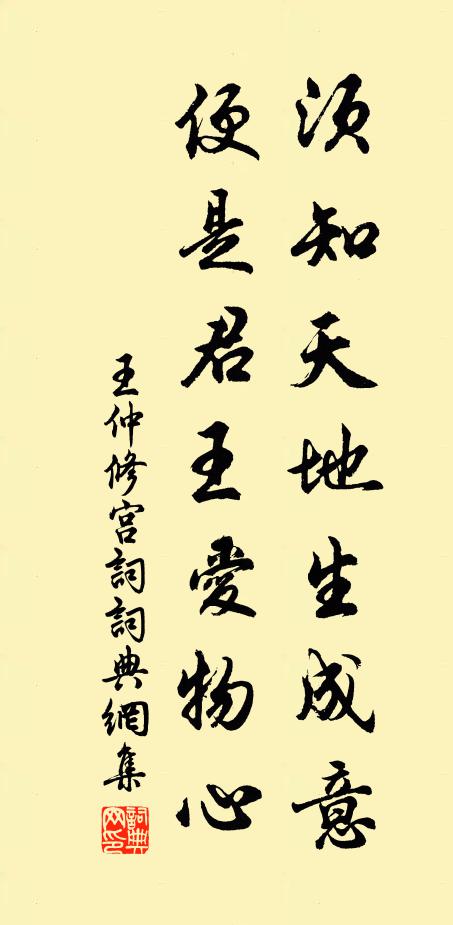 須知天地生成意
便是君王愛物心
王仲修宮詞詞典網集
詞典网印